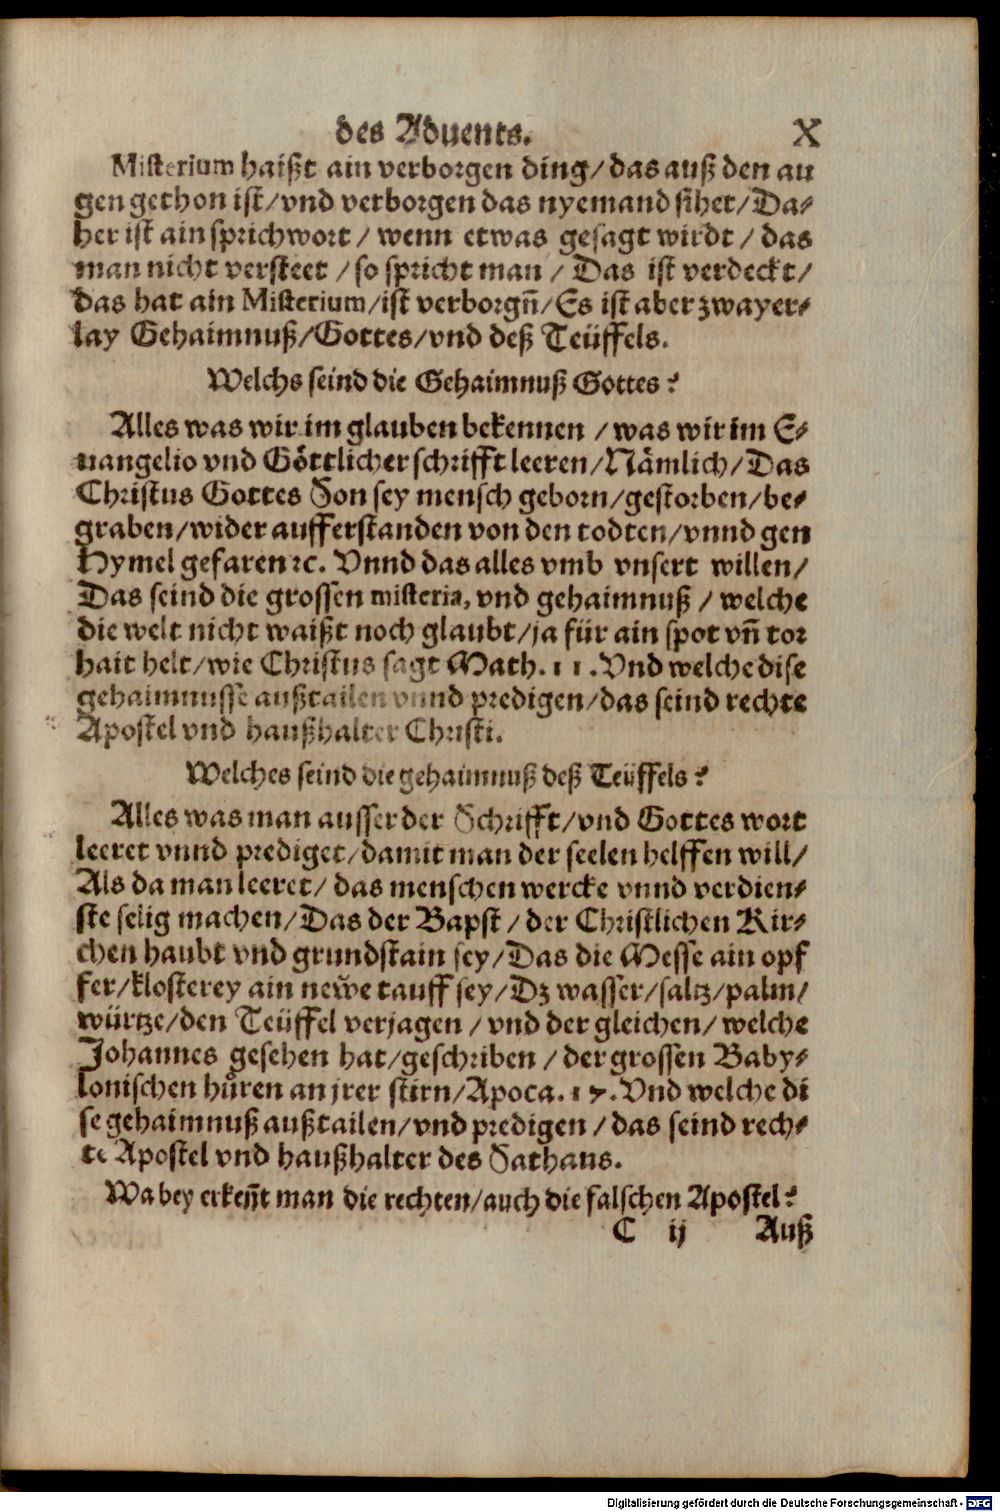 des Aduents. X
Misterium haißt ain verborgen ding/das auß den au
gen gethon ist/vnd verborgen das nyemand sihet/Da⸗
her ist ain sprichwort / wenn etwas gesagt wirdt / das
man nicht versteet /so spricht man / Das ist verdeckt/
das hat ain Misterium/ist verborgñ/Es ist aber zwayer⸗
lay Gehaimnuß/Gottes/vnd deß Teüffels.
Welchs seind die Gehaimnuß Gottes?
Alles was wir im glauben bekennen /was wir im E⸗
uangelio vnd Göttlicher schrifft leeren/Nämlich/Das
Christus Gottes Son sey mensch geborn/gestorben/be⸗
graben/wider aufferstanden von den todten/vnnd gen
Hymel gefaren ꝛc. Vnnd das alles vmb vnsert willen/
Das seind die grossen misteria, vnd gehaimnuß / welche
die welt nicht waißt noch glaubt/ja für ain spot vñ tor
hait helt/wie Christus sagt Math. 11. Vnd welche dise
gehaimnusse außtailen vnnd predigen/das seind rechte
Apostel vnd haußhalter Christi.
Welches seind die gehaimnuß deß Teüffels?
Alles was man ausser der Schrifft/vnd Gottes wort
leeret vnnd prediget/damit man der seelen helffen will/
Als da man leeret/ das menschen wercke vnnd verdien⸗
ste selig machen/Das der Bapst / der Christlichen Kir⸗
chen haubt vnd grundstain sey/Das die Messe ain opf
fer/klosterey ain newe tauff sey/Dz wasser/saltz/palm/
würtze/den Teüffel verjagen /vnd der gleichen/welche
Johannes gesehen hat/geschriben /der grossen Baby⸗
lonischen hůren an jrer stirn/Apoca. 17. Vnd welche di
se gehaimnuß außtailen/vnd predigen /das seind rech⸗
te Apostel vnd haußhalter des Sathans.
Wabey erkeñt man die rechten/auch die falschen Apostel?
C ij Auß
Digitalisierung gefördert durch die Deutsche Forschungsgemeinschaft - DFG